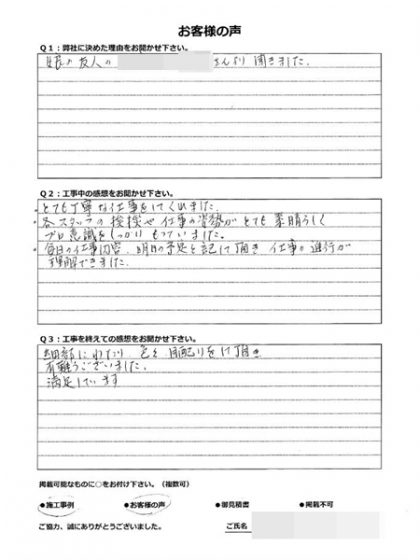 お客様の声
Q1：弊社に決めた理由をお聞かせ下さい。
友人の さんより聞きました。
Q2：工事中の感想をお聞かせ下さい。
とても丁寧な仕事をしてくれました。
・各スタッフの挨拶や仕事の姿勢がとても素晴らしく
プロ意識をしっかりもっていました。
・毎日の仕事内容、明日の予定と記して頂き 仕事の進行が
理解できました。
Q3：工事を終えての感想をお聞かせ下さい。
細部にわたり、色々目配りをして頂き
有難うございました。
満足しています
掲載可能なものに○をお付け下さい。（複数可）
●施工事例 ●お客様の声 ●御見積書 ●掲載不可
ご協力、誠にありがとうございました。 ご氏名